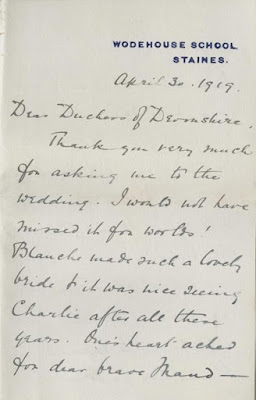 WODEHOUSE SCHOOL,
STAINES.
April 30. 1919.
Dear Duchess of Devonshire,
Thank you very much
for asking me to the
wedding. I would not have
missed it for worlds!
Blanche made such a lovely
bride & it was nice seeing
Charlie after all these
years. One's heart ached
for dear brave Maud —